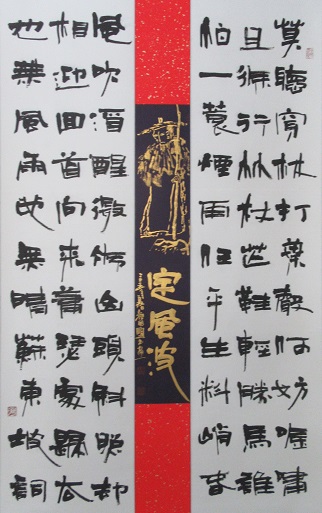 莫聽穿林打葉聲何妨吟嘯
且徐行竹杖芒鞋輕勝馬誰
怕一蓑煙雨任平生料峭春
定風波
風吹酒醒微冷山頭斜照却
相迎回首向來蕭瑟處歸去
也無風雨也無晴蘇東坡詞